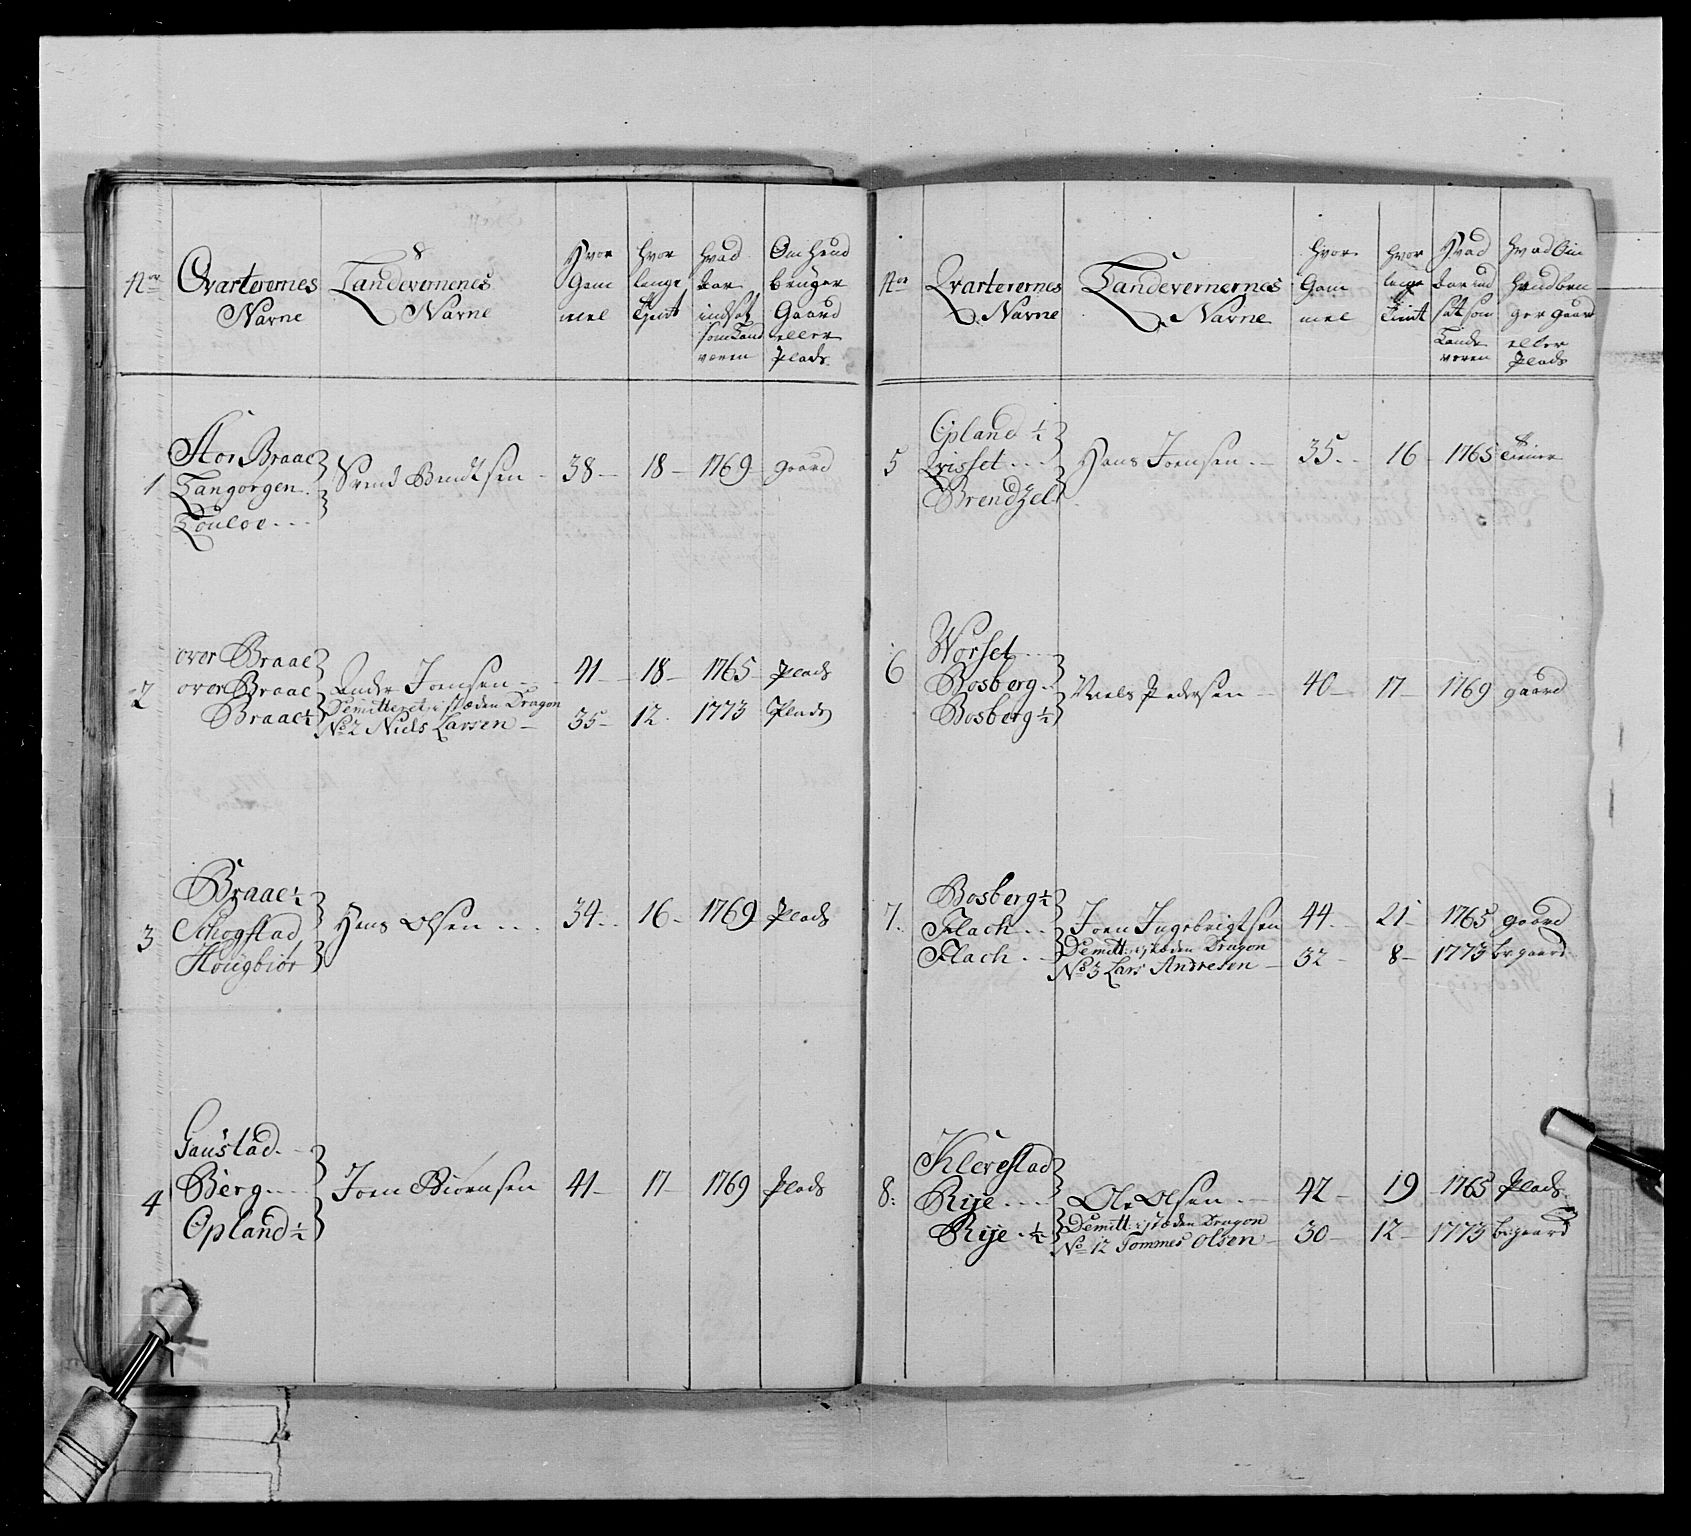 Nor Qvarterernes Navne
Landevernenes Navne
Hvor Gam mel
hvor lenge Tjent
hvad Aar indsat som Land væren
Om hand bruger Gaard eller Plads
1 Stor Braae
Langorgen
Louloe
Svend Bendtsen 38 18 1769 gaard
2 over Braae
over Braae
Braae ½
Andr Joensen 41 18 1765 Plads
Demitteret i stæden Dragon
No 2 Niels Larsen 35 12 1773 Plads
3 Braae ½
Schogstad
Hougbiör
Hans Olsen 34 16 1769 Plads
4 Gaustad
Berg
Opland ½
Joen Biörnsen 41 17 1769 Plads
Nor Qvarterernes Navne
Landevernernes Navne
hvor Gam mel
hvor lenge Tient
Hvad Aar ind sat som Lande væren
hvad Om Hand bru ger gaard eller Plads
5 Opland ½
Qvisset
Brendzel
Hans Joensen 35 16 1765 Tiener
6 Worset
Bosberg
Bosberg ½
Niels Pedersen 40 17 1769 gaard
7. Bosberg ½
Flach
Flach
Joen Ingebrigtsen 44 21 1765 gaard
Demitt: i stæden Dragon
No 3 Lars Andresen 32 8 1773 br gaard
8: Klerestad
Rije
Rije ½
Ole Olsen 42 19 1765 Plads
Demitt: i stæden Dragon
No 12 Tommes Olsen 30 12 1773 br gaard